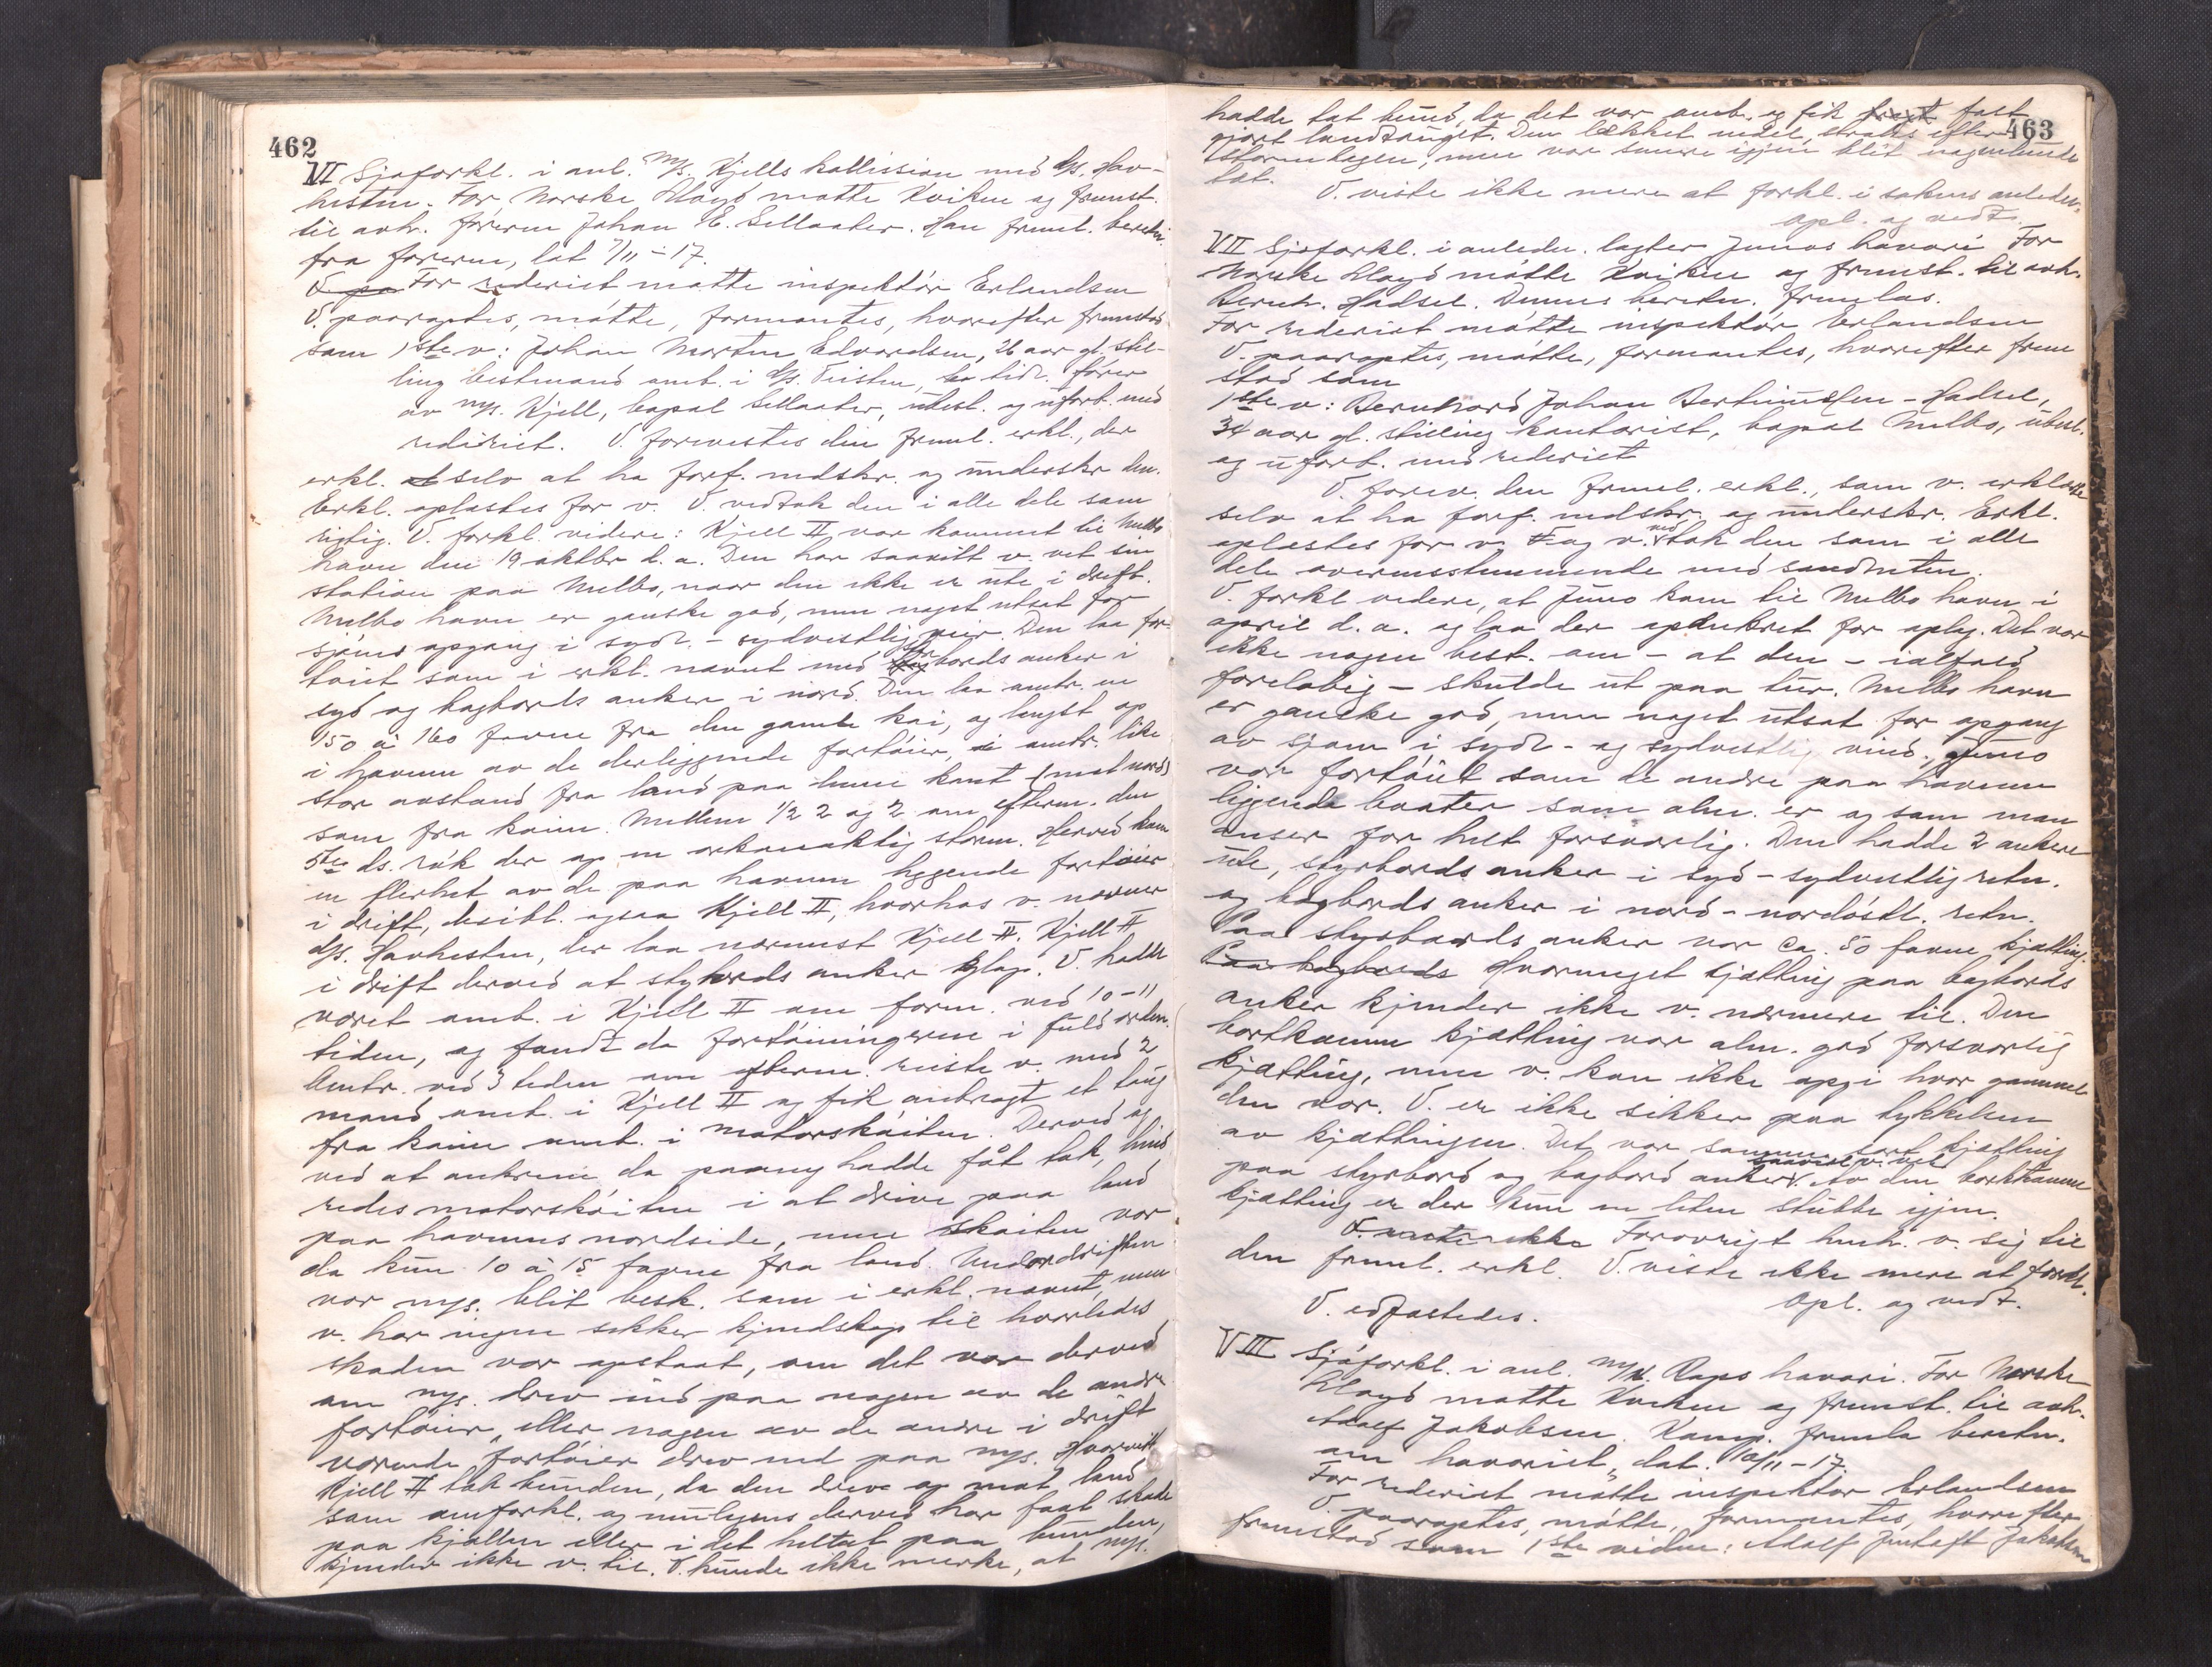 462
VI Sjøforkl. i anl. m/s. Kjells kollission med d/s. Hav-
hesten. For Norske Lloyd møtte Kviken og fremst.
til avh. føreren Johan E. Sellaater. Han freml. beretn.
fra føreren, dat 7/11 - 17.
V. pa For rederiet møtte inspektør Erlandsen
V. paaroptes, møtte, formantes, hvorefter fremstod
som 1ste v: Johan Morten Edvardsen, 26 aar gl. stil-
ling bestmand omb. i d/s. Teisten, bo tidl. fører
av m/s. Kjell, bopal Sellaater, ubesl. og uforb. med
rederiet. V. forevistes den freml. erkl., der
erkl. at selv at ha forf. nedskr. og underskr den.
Erkl. oplæstes for v. V. vedtok den i alle dele som
rigtig. V. forkl. videre: Kjell II var kommet til Melbo
havn den 19 oktbr d. a. Den har saavitt v. vet sin
station paa Melbo, naar den ikke er ute i drift.
Melbo havn er ganske god, men noget utsat for
sjøens opgang i sydl. - sydvestlig veir. Den laa for-
tøiet som i erkl. nævnt med styrbords anker i
syd og bagbords anker i nord. Den laa omtr. en
150 à 160 favne fra den gamle kai, og længst op
i havnen av de derliggende fartøier, i omtr. like
stor avstand fra land paa denne kant (mot nord)
som fra kaien. Mellem 1/2 2 og 2 om efterm. den
5te ds. røk der op en orkanaktig storm. Herved kom
en flerhet av de paa havnen liggende fartøier
i drift, desibl. ogsaa Kjell II, hvorhos v. nævner
d/s. Havhesten, der laa nærmest Kjell II. Kjell II
i drift derved at styrbords anker glap. V. hadde
været omb. i Kjell II om form. ved 10-11
tiden, og fandt da fortøiningerne i fuld orden.
Omtr. ved 3 tiden om efterm. reiste v. med 2
mand omb. i Kjell II og fik anbragt et taug
fra kaien omb. i motorskøiten. Derved og
ved at ankrene da paany hadde fåt tak, hind
redes motorskøiten i at drive paa land
paa havnens nordside, men skøiten var
da kun 10 à 15 favne fra land. Under driften
var m/s. blit besk. som i erkl. nævnt, men
v. har ingen sikker kjendskap til hvorledes
skaden var opstaat, om det var derved
om m/s. drev ind paa nogen av de andre
fartøier, eller nogen av de andre i drift
værende fartøier drev ned paa m/s. Hvorvidt
Kjell II tok bunden, da den drev op mot land
som omforkl. og muligens derved har faat skade
paa kjølen eller i det heltat paa bunden,
kjender ikke v. til. V. kunde ikke merke, at m/s.
463
hadde tat bund, da det var omb. og fik fast
gjort landtauget. Den lekket noget straks efter
stormdagen, men var senere igjen blit nogenlunde
tæt.
V. viste ikke mere at forkl. i sakens anledn.
Opl. og vedt.
VII Sjøforkl. i anledn. lagter Junos havari For
Norske Lloyd møtte Kviken og fremst. til avh.
Bernh. Hadsel. Dennes beretn. fremlas.
For rederiet møtte inspektør Erlandsen
V. paaroptes, møtte, formantes, hvorefter frem
stod som
1ste v: Bernhard Johan Bertheussen - Hadsel,
34 aar gl. stilling kontorist, bopal Melbo, ubesl.
og uforb. med rederiet
V. forev. den freml. erkl., som v. erklærte
selv at ha forf. nedskr. og underskr. Erkl.
oplæstes for v. V og v. vedtok den som i alle
dele overensstemmende med sandheten.
V. forkl videre, at Juno kom til Melbo havn i
april d. a. og laa der opankret for oplag. Det var
ikke nogen best. om - at den - ialfald
foreløbig - skulde ut paa tur. Melbo havn
er ganske god, men noget utsat for opgang
av sjøen i sydl- og sydvestlig vind. Juno
var fortøiet som de andre paa havnen
liggende baater som alm. er og som man
anser for helt forsvarlig. Den hadde 2 ankere
ute, styrbords anker i syd - sydvestlig retn.
og bagbords anker i nord - nordøstl. retn.
Paa styrbords anker var ca. 50 favne kjætting.
Paa bagbords Hvormeget kjætting paa bagbords
anker kjender ikke v. nærmere til. Den
bortkomne kjætting var alm. god forsvarlig
kjætting, men v. kan ikke opgi hvor gammel
den var. V. er ikke sikker paa tykkelsen
av kjættingen. Det var samme sort kjætting
paa styrbord og bagbord anker saavidt v. vet. Av den bortkomne
kjætting er der kun en liten stubbe igjen.
V. viste ikke Forøvrigt henh. v. sig til
den freml. erkl. V. viste ikke mere at forkl.
Opl. og vedt.
V. edfæstedes.
VIII Sjøforkl. i anl. m/k. Raps havari. For Norske
Lloyd møtte Kviken og fremst. til avh.
Adolf Jakobsen. Komp. fremla beretn.
om havariet, dat. 10/11 - 17.
For rederiet møtte inspektør Erlandsen
V. paaroptes, møtte, formantes, hvorefter
fremstod som 1ste vidne: Adolf Jakobsen